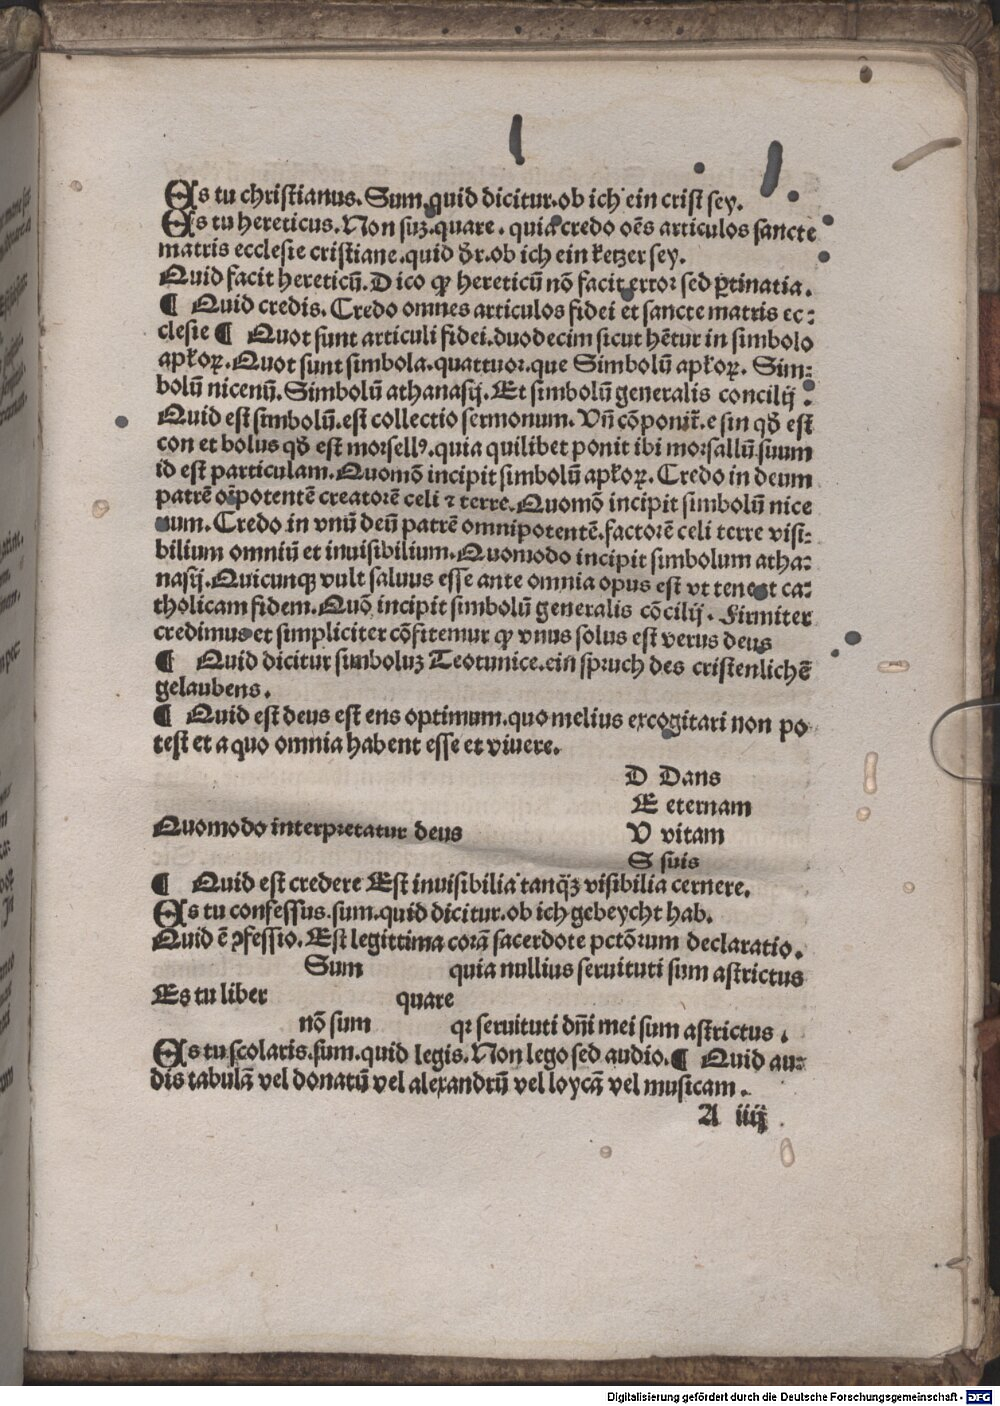 Es tu christianus. Sum. quid dicitur. ob ich ein crist sey.
Es tu hereticus. Non suꝫ. quare. quia credo oēs articulos sancte
matris ecclesie cristiane. quid dr̄. ob ich ein ketzer sey.
Quid facit hereticū. Dico ꝙ hereticū nō facit error sed ꝑtinatia.
¶ Quid credis. Credo omnes articulos fidei et sancte matris ec:
clesie ¶ Quot sunt articuli fidei. duodecim sicut hētur in simbolo
apl̓oꝝ. Quot sunt simbola. quattuor. que Simbolū apl̓oꝝ. Sim:
bolū nicenū. Simbolū athanasij. Et simbolū generalis concilij :
Quid est simbolū. est collectio sermonum. Vn̄ cōponit̄. e sin qḋ est
con et bolus qḋ est morsellꝰ. quia quilibet ponit ibi morsallū suum
id est particulam. Quomō incipit simbolū apl̓oꝝ. Credo in deum
patrē oīpotentē creatorē celi ⁊ terre. Quomō incipit simbolū nice
num. Credo in vnū deū patrē omnipotentē. factorē celi terre visi:
bilium omniū et inuisibilium. Quomodo incipit simbolum atha:
nasij. Quicunqꝫ vult saluus esse ante omnia opus est vt teneat ca:
tholicam fidem. Quō incipit simbolū generalis cōcilij. Firmiter
credimus et simpliciter cōfitemur ꝙ vnus solus est verus deus
¶ Quid dicitur simboluꝫ Teotunice. ein spruch des cristenlichē
gelaubens.
¶ Quid est deus est ens optimum. quo melius excogitari non po
test et a quo omnia habent esse et viuere.
D Dans
E eternam
Quomodo interpretatur deus V vitam
S suis
¶ Quid est credere Est inuisibilia tanq̄ꝫ visibilia cernere.
Es tu confessus. sum. quid dicitur. ob ich gebeycht hab.
Quid ē ꝯfessio. Est legittima corā sacerdote pctōrum declaratio.
Sum quia nullius seruituti sum astrictus
Es tu liber quare
nō sum qꝛ seruituti dn̄i mei sum astrictus.
Es tu scolaris. sum. quid legis. Non lego sed audio. ¶ Quid au:
dis tabulā vel donatū vel alexandrū vel loycā vel musicam.
A iiij
Digitalisierung gefördert durch die Deutsche Forschungsgemeinschaft - DFG